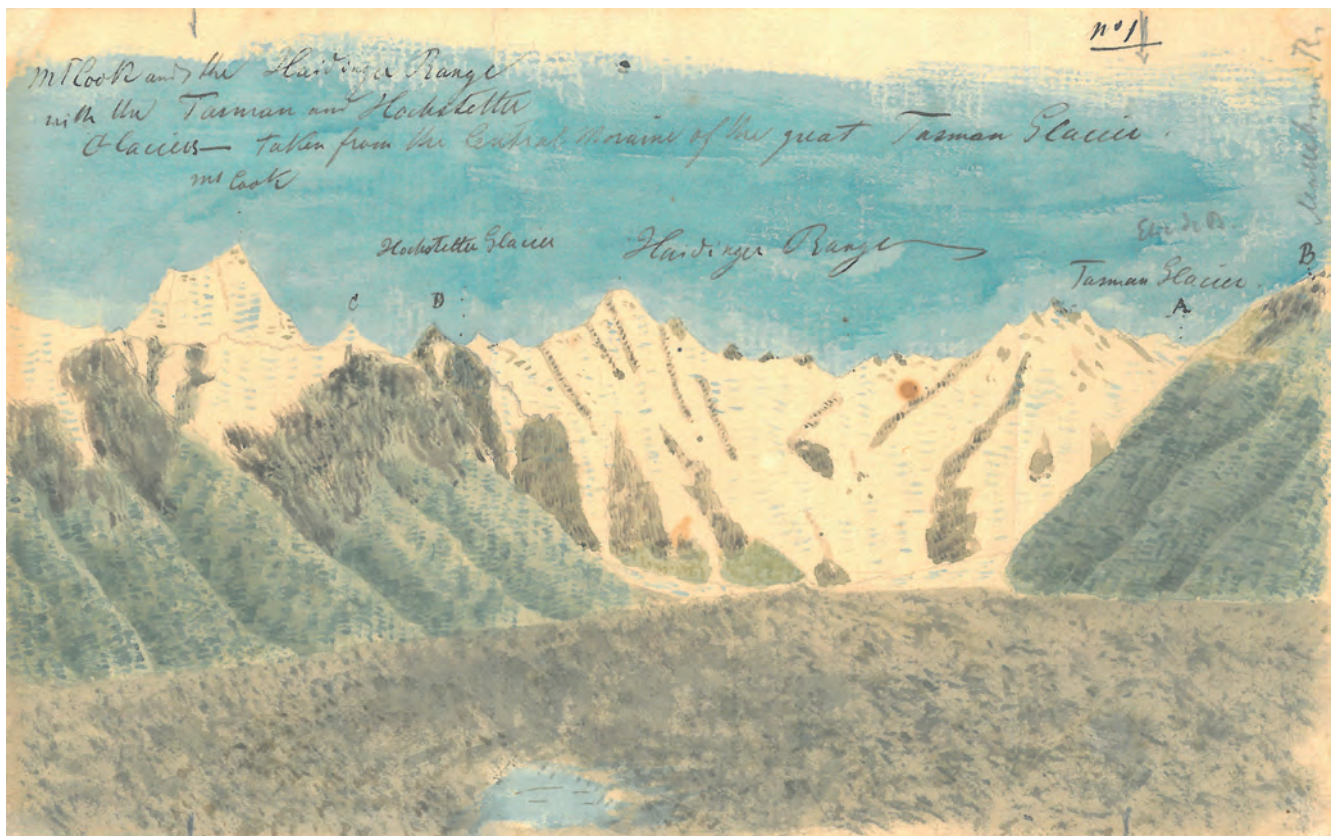 no 1
Mt Cook and the Haidinger Range
with the Tasman and Hochstetter
Glaciers — taken from the Central Moraine of the great Tasman Glacier.
Mt Cook
Hochstetter Glacier
Haidinger Range
Tasman Glacier.
A
B
C
D